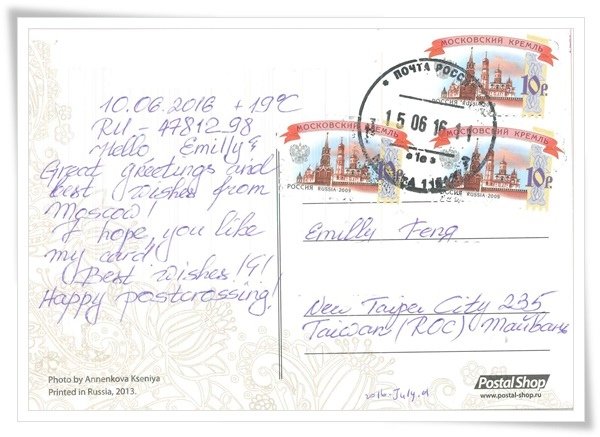 10.06.2016 +19°C
RU-4781298
Hello Emilly!
Great greetings and
best wishes from
Moscow!
I hope, you like
my card!
Best wishes!
Happy postcrossing!
Photo by Annenkova Kseniya
Printed in Russia, 2013.
МОСКОВСКИЙ КРЕМЛЬ
10р.
РОССИЯ RUSSIA
МОСКОВСКИЙ КРЕМЛЬ
10р.
РОССИЯ RUSSIA·2009
10р.
РОССИЯ RUSSIA·2009
ПОЧТА РОССИ
15 06 16
Emilly Feng
New Taipei City 235
Taiwan (ROC) Тайвань
2016-July.01
Postal Shop
www.postal-shop.ru